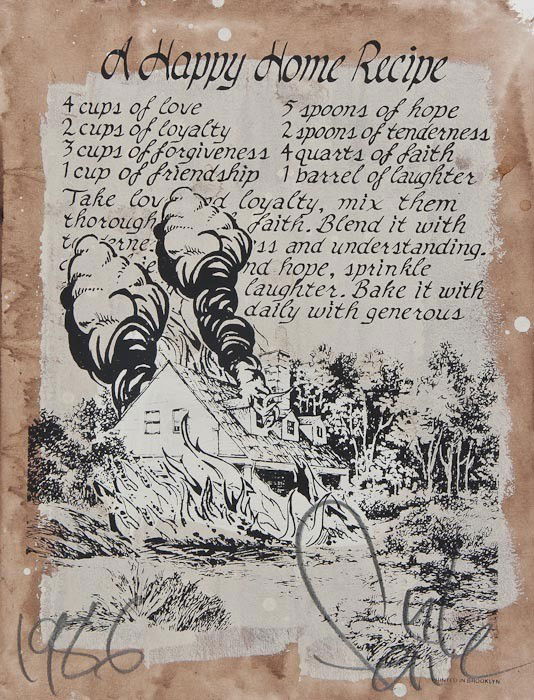 A Happy Home Recipe
4 cups of love
2 cups of loyalty
3 cups of forgiveness
1 cup of friendship
5 spoons of hope
2 spoons of tenderness
4 quarts of faith
1 barrel of laughter
Take lov nd loyalty, mix them
thorough faith. Blend it with
t derne ss and understanding.
nd hope, sprinkle
laughter. Bake it with
daily with generous
1986
PRINTED IN BROOKLYN